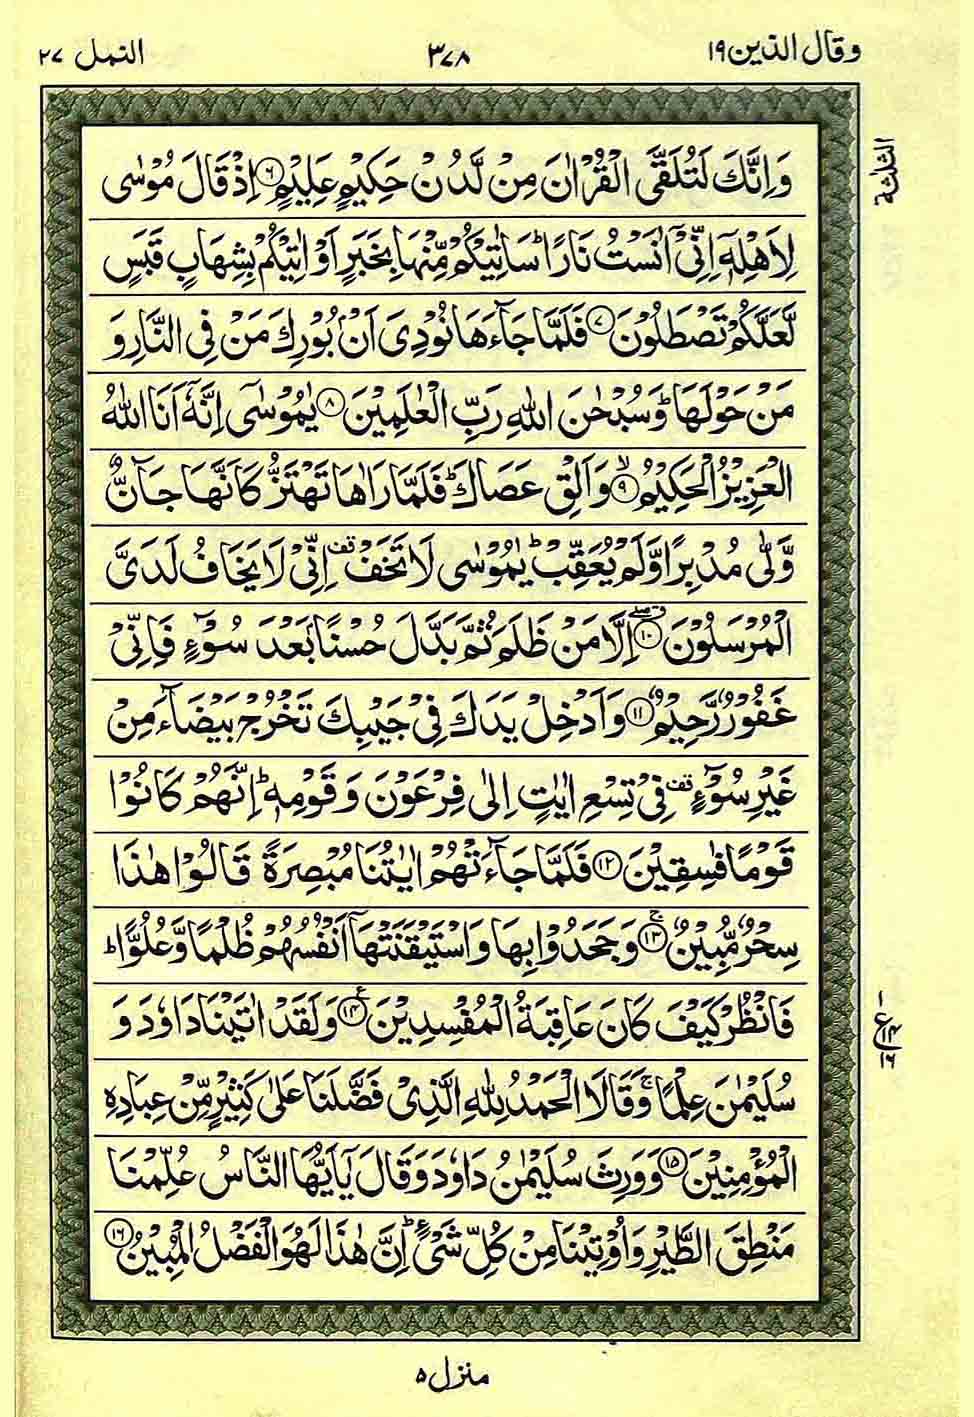 وقال الذین ۱۹
۳۷۸
النمل ۲۷
الثلثة
وَاِنَّكَ لَتُلَقَّى الْقُرْاٰنَ مِنْ لَّدُنْ حَكِيْمٍ عَلِيْمٍ ۶ اِذْ قَالَ مُوْسٰى
لِاَهْلِهٖۤ اِنِّيْۤ اٰنَسْتُ نَارًا ؕ سَاٰتِيْكُمْ مِّنْهَا بِخَبَرٍ اَوْ اٰتِيْكُمْ بِشِهَابٍ قَبَسٍ
لَّعَلَّكُمْ تَصْطَلُوْنَ ۷ فَلَمَّا جَآءَهَا نُوْدِيَ اَنْۢ بُوْرِكَ مَنْ فِي النَّارِ وَ
مَنْ حَوْلَهَا ؕ وَسُبْحٰنَ اللّٰهِ رَبِّ الْعٰلَمِيْنَ ۸ يٰمُوْسٰۤى اِنَّهٗۤ اَنَا اللّٰهُ
الْعَزِيْزُ الْحَكِيْمُ ۙ ۹ وَاَلْقِ عَصَاكَ ؕ فَلَمَّا رَاٰهَا تَهْتَزُّ كَاَنَّهَا جَآنٌّ
وَّلّٰى مُدْبِرًا وَّلَمْ يُعَقِّبْ ؕ يٰمُوْسٰى لَا تَخَفْ قف اِنِّيْ لَا يَخَافُ لَدَيَّ
الْمُرْسَلُوْنَ ۱۰ اِلَّا مَنْ ظَلَمَ ثُمَّ بَدَّلَ حُسْنًۢا بَعْدَ سُوْٓءٍ فَاِنِّيْ
غَفُوْرٌ رَّحِيْمٌ ۱۱ وَاَدْخِلْ يَدَكَ فِيْ جَيْبِكَ تَخْرُجْ بَيْضَآءَ مِنْ
غَيْرِ سُوْٓءٍ قف فِيْ تِسْعِ اٰيٰتٍ اِلٰى فِرْعَوْنَ وَقَوْمِهٖ ؕ اِنَّهُمْ كَانُوْا
قَوْمًا فٰسِقِيْنَ ۱۲ فَلَمَّا جَآءَتْهُمْ اٰيٰتُنَا مُبْصِرَةً قَالُوْا هٰذَا
سِحْرٌ مُّبِيْنٌ ۚ ۱۳ وَجَحَدُوْا بِهَا وَاسْتَيْقَنَتْهَاۤ اَنْفُسُهُمْ ظُلْمًا وَّعُلُوًّا ؕ
فَانْظُرْ كَيْفَ كَانَ عَاقِبَةُ الْمُفْسِدِيْنَ ۱۴ ع وَلَقَدْ اٰتَيْنَا دَاوٗدَ وَ
سُلَيْمٰنَ عِلْمًا ۚ وَقَالَا الْحَمْدُ لِلّٰهِ الَّذِيْ فَضَّلَنَا عَلٰى كَثِيْرٍ مِّنْ عِبَادِهِ
الْمُؤْمِنِيْنَ ۱۵ وَوَرِثَ سُلَيْمٰنُ دَاوٗدَ وَقَالَ يٰۤاَيُّهَا النَّاسُ عُلِّمْنَا
مَنْطِقَ الطَّيْرِ وَاُوْتِيْنَا مِنْ كُلِّ شَيْءٍ ؕ اِنَّ هٰذَا لَهُوَ الْفَضْلُ الْمُبِيْنُ ۱۶
منزل ۵